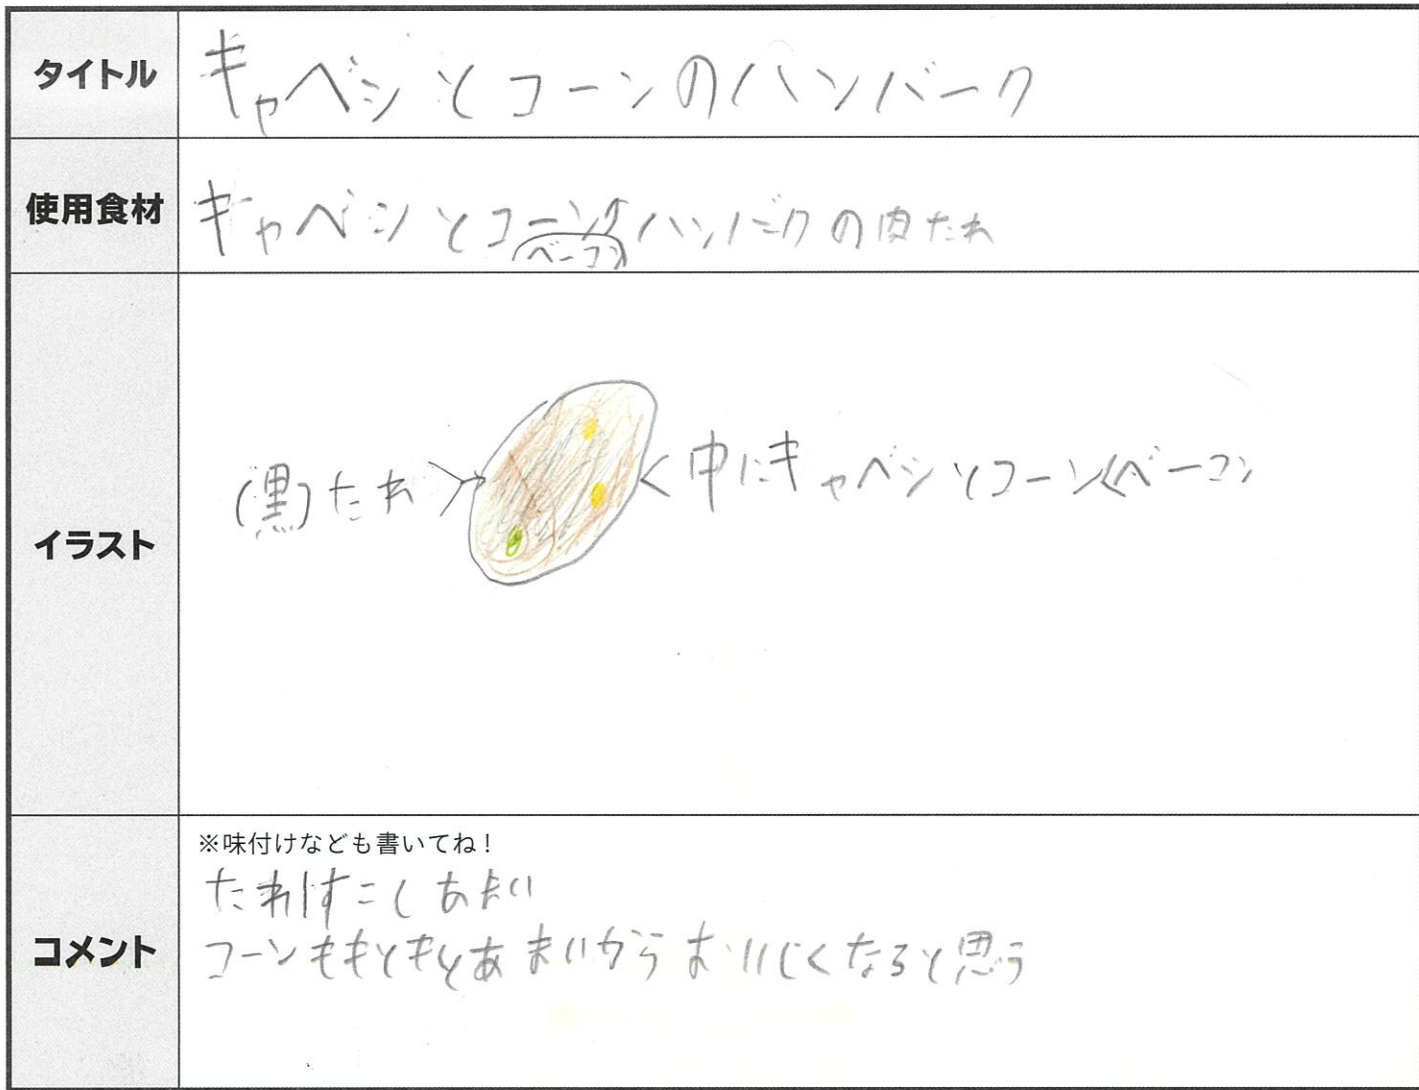 タイトル
キャベシとコーンのハンバーク
使用食材
キャベシとコーン ハンバークの肉たれ
ベーコン
イラスト
(黒)たれ
中にキャベシとコーンベーコン
コメント
※味付けなども書いてね!
たれはすこしあまい
コーンももともとあまいからおいしくなると思う